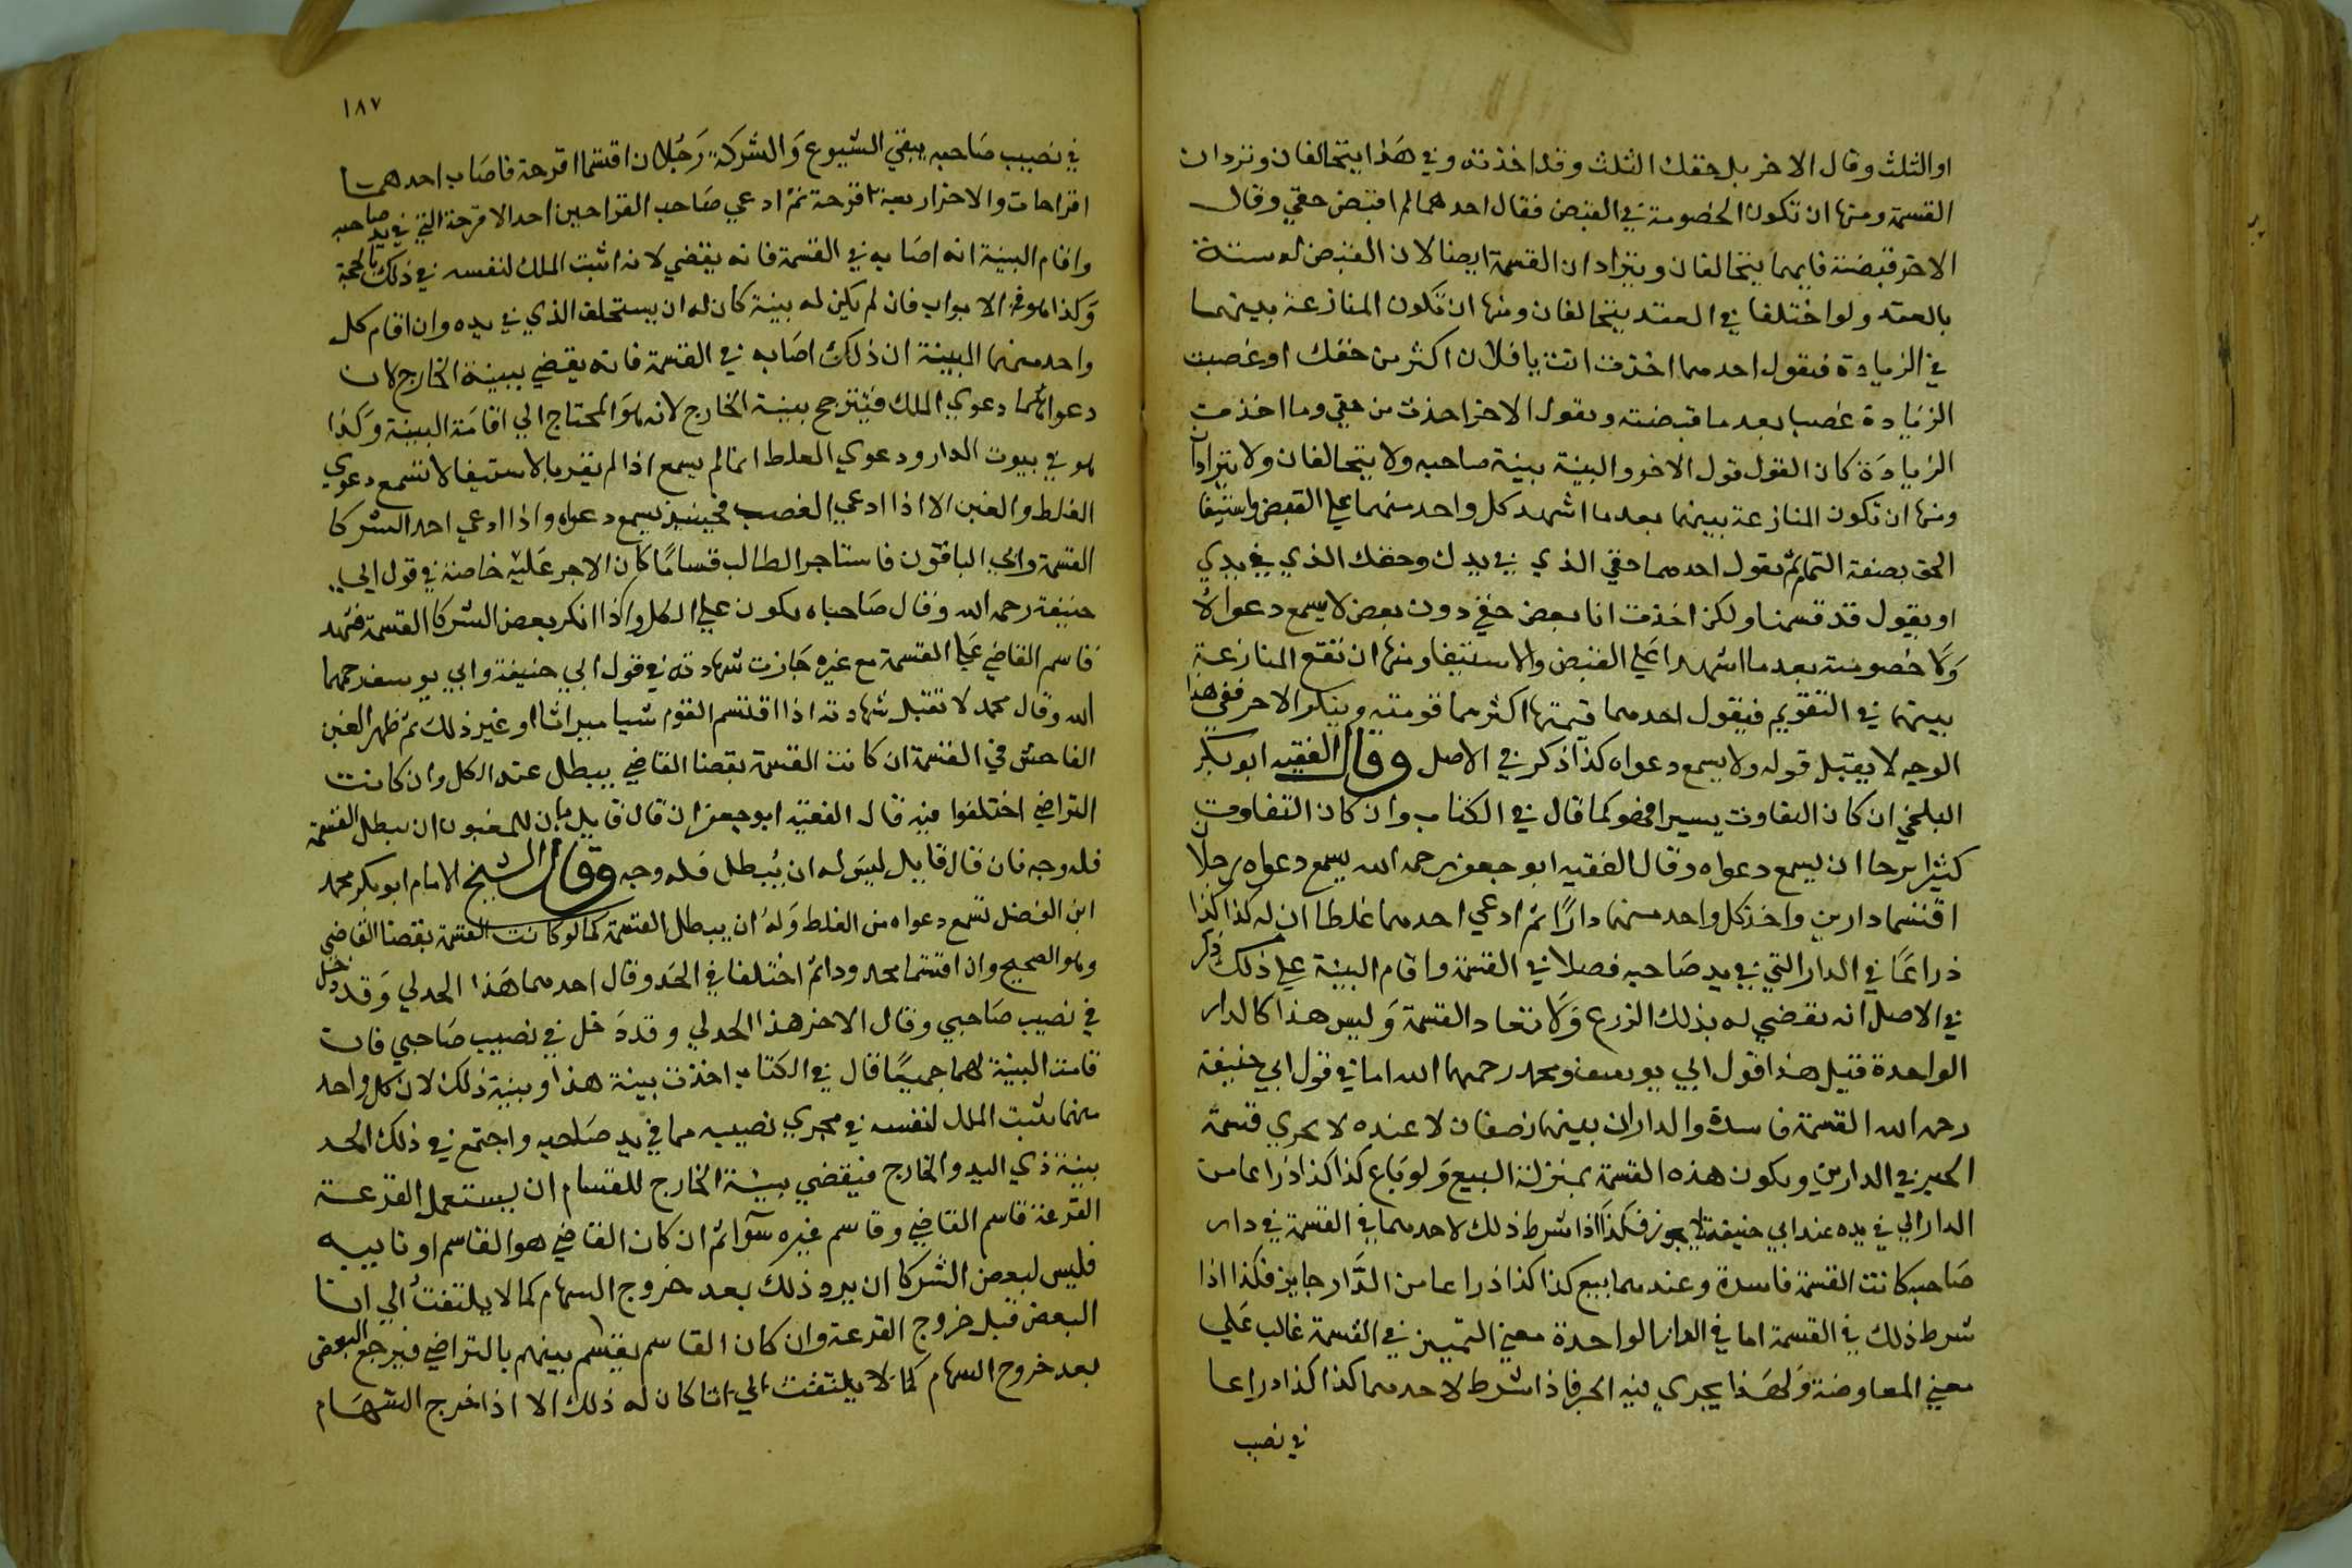 او الثلث وقال الاخر بل حقك الثلث وقد اخذته وفي هذا يتحالفان وتردان
القسمة ومنها ان تكون الخصومة في القبض فقال احدهما لم اقبض حقي وقال
الاخر قبضته فانهما يتحالفان ويترادان القسمة ايضا لان القبض له
بالعقد ولو اختلفا في العقد يتحالفان ومنها ان تكون المنازعة بينهما
في الزيادة فيقول احدهما اخذت انت يا فلان اكثر من حقك او غصبت
الزيادة غصبا بعد ما قبضته ويقول الاخر اخذت من حقي وما اخذت
الزيادة كان القول قول الاخر والبينة بينة صاحبه ولا يتحالفان ولا يترادان
ومنها ان تكون المنازعة بينهما بعد ما اشهد كل واحد منهما علي القبض واستيفا
الحق بصفة التمام ثم يقول احدهما حقي الذي في يدك وحقك الذي في يدي
او يقول قد قسمنا ولكن اخذت انا بعض حقي دون بعض لا يسمع دعواه
ولا خصومته بعد ما اشهدا علي القبض والاستيفا ومنها ان تقع المنازعة
بينهما في التقويم فيقول احدهما قيمتها اكثر مما قومته وينكر الاخر ففي هذا
الوجه لا يقبل قوله ولا يسمع دعواه كذا ذكر في الاصل وقال الفقيه ابو بكر
البلخي ان كان التفاوت يسيرا فهو كما قال في الكتاب وان كان التفاوت
كثيرا يرجا ان يسمع دعواه وقال الفقيه ابو جعفر رحمه الله يسمع دعواه رجلان
اقتسما دارين واخذ كل واحد منهما دارا ثم ادعي احدهما غلطا ان له كذا كذا
ذراعا في الدار التي في يد صاحبه فصلا في القسمة واقام البينة علي ذلك ذكر
في الاصل انه يقضي له بذلك الزرع ولا تعاد القسمة وليس هذا كالدار
الواحدة قيل هذا قول ابي يوسف ومحمد رحمهما الله اما في قول ابي حنيفة
رحمه الله القسمة فاسدة والداران بينهما نصفان لا عنده لا يجري قسمة
الجبر في الدارين ويكون هذه القسمة بمنزلة البيع ولو باع كذا كذا ذراعا من
الدار التي في يده عند ابي حنيفة لا يجوز فكذا اذا شرط ذلك لاحدهما في القسمة في دار
صاحبه كانت القسمة فاسدة وعندهما بيع كذا كذا ذراعا من الدار جايز فكذا اذا
شرط ذلك في القسمة اما في الدار الواحدة معني التمييز في القسمة غالب علي
معني المعاوضة ولهذا يجري فيه الجبر فاذا شرط لاحدهما كذا كذا ذراعا
في نصيب
١٨٧
في نصيب صاحبه يبقي الشيوع والشركة رجلان اقتسما اقرحة فاصاب احدهما
اقراحات والاخر اربعة اقرحة ثم ادعي صاحب القراحين احد الاقرحة التي في يد صاحبه
واقام البينة انه اصابه في القسمة فانه يقضي لانه اثبت الملك لنفسه في ذلك بالحجة
وكذا هو في الابواب فان لم يكن له بينة كان له ان يستحلف الذي في يده وان اقام كل
واحد منهما البينة ان ذلك اصابه في القسمة فانه يقضي ببينة الخارج لان
دعواهما دعوي الملك فيترجح بينة الخارج لانه هو المحتاج الي اقامة البينة وكذا
هو في بيوت الدار ودعوي الغلط انما لم يسمع اذا لم يقر بالاستيفا لا تسمع دعوي
الغلط والغبن الا اذا ادعي الغصب فحينيذ يسمع دعواه واذا ادعي احد الشركا
القسمة وابي الباقون فاستاجر الطالب قساما كان الاجر عليه خاصة في قول ابي
حنيفة رحمه الله وقال صاحباه يكون علي الكل واذا انكر بعض الشركا القسمة فشهد
قاسم القاضي علي القسمة مع غيره جازت شهادته في قول ابي حنيفة وابي يوسف رحمهما
الله وقال محمد لا تقبل شهادته اذا اقتسم القوم شيا ميراثا او غير ذلك ثم ظهر الغبن
الفاحش في القسمة ان كانت القسمة بقضا القاضي يبطل عند الكل وان كانت
التراضي اختلفوا فيه قال الفقيه ابو جعفر ان قال قايل بان للمغبون ان يبطل القسمة
فله وجه فان قال قايل ليس له ان يبطل فله وجه وقال الشيخ الامام ابو بكر محمد
ابن الفضل تسمع دعواه من الغلط وله ان يبطل القسمة كما لو كانت القسمة بقضا القاضي
وهو الصحيح وان اقتسما محدودا ثم اختلفا في الحد وقال احدهما هذا الحد لي وقد دخل
في نصيب صاحبي وقال الاخر هذا الحد لي وقد دخل في نصيب صاحبي فان
قامت البينة لهما جميعا قال في الكتاب اخذت بينة هذا وبينة ذلك لان كل واحد
منهما يثبت الملك لنفسه في مجري نصيبه مما في يد صاحبه واجتمع في ذلك الحد
بينة ذي اليد والخارج فيقضي ببينة الخارج للقسام ان يستعمل القرعة
القرعة قاسم القاضي وقاسم غيره سوآ ثم ان كان القاضي هو القاسم او نايبه
فليس لبعض الشركا ان يرد ذلك بعد خروج السهام كما لا يلتفت الي ابا
البعض قبل خروج القرعة وان كان القاسم يقسم بينهم بالتراضي فيرجع البعض
بعد خروج السهام كما لا يلتفت الي ابا كان له ذلك الا اذا خرج السهام